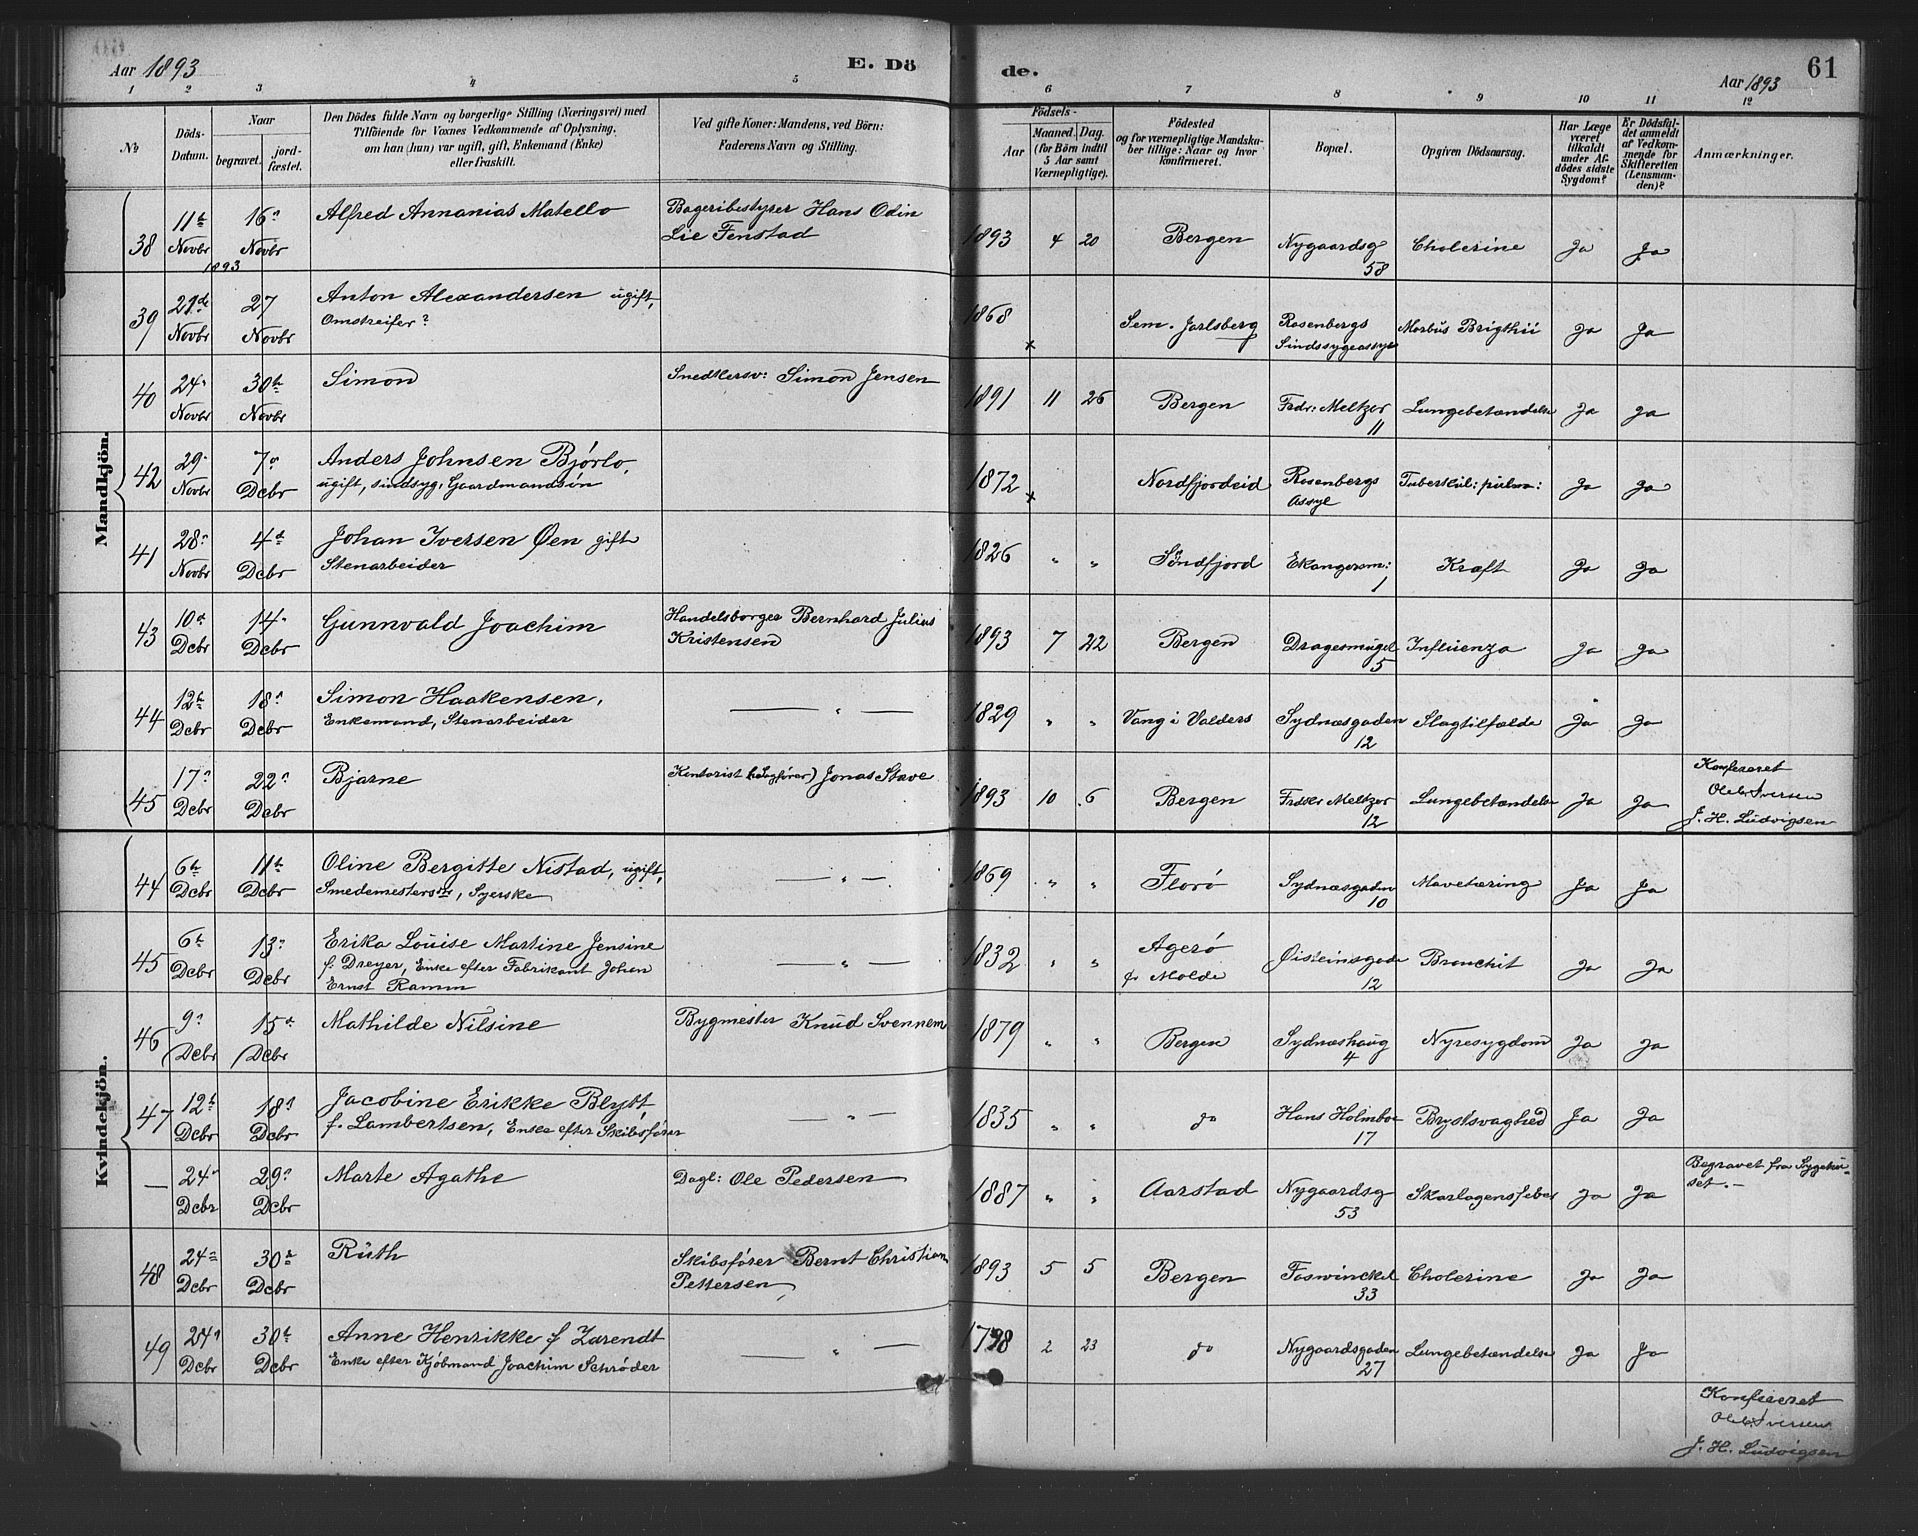 Aar 1893
E. Dö
de.
Aar 1893
61
1 2 3 4 5 6 7 8 9 10 11 12
No
Döds-
Datum.
Naar
begravet.
jord-
fæstet.
Den Dödes fulde Navn og borgerlige Stilling (Næringsvei) med
Tilföiende for Voxnes Vedkommende af Oplysning,
om han (hun) var ugift, gift, Enkemand (Enke)
eller fraskilt.
Ved gifte Koner: Mandens, ved Börn:
Faderens Navn og Stilling.
Födsels-
Aar
Maaned.
Dag.
(for Börn indtil
5 Aar samt
Værnepligtige).
Födested
og for værnepligtige Mandska-
ber tillige: Naar og hvor
konfirmeret.
Bopæl.
Opgiven Dödsaarsag.
Har Læge
været
tilkaldt
under Af-
dödes sidste
Sygdom?
Er Dödsfal-
det anmeldt
af Vedkom-
mende for
Skifteretten
(Lensman-
den)?
Anmærkninger.
Mandkjön.
38 11te Novbr 1893 16de Novbr Alfred Annanias Matello Bageribestyrer Hans Odin
Lie Fenstad 1893 4 20 Bergen Nygaardsg 58 Cholerine Ja Ja
39 21de Novbr 27 Novbr Anton Alexandersen ugift,
Omstreifer? 1868 x Sem. Jarlsberg Rosenbergs
Sindssygeassyl Morbus Brigthii Ja Ja
40 24 Novbr 30te Novbr Simon Snedkersv: Simon Jensen 1891 11 26 Bergen Frdr: Meltzer 11 Lungebetændelse Ja Ja
42 29 Novbr 7de Dcbr Anders Johnsen Bjørlo,
ugift, sindsyg, Gaardmandssøn 1872 x Nordfjordeid Rosenbergs
Assyl Tuberkul: pulm: Ja Ja
41 28 Novbr 4de Dcbr Johan Iversen Øen gift
Stenarbeider 1826 " " Søndfjord Ekangersm: 1 Kræft Ja Ja
43 10de Dcbr 14 Dcbr Gunnvald Joachim Handelsborger Bernhard Julius
Kristensen 1893 7 22 Bergen Dragesmuget 5 Influenza Ja Ja
44 12te Dcbr 18de Dcbr Simon Haakensen,
Enkemand, Stenarbeider — " — 1829 " " Vang i Valders Sydnæsgaden 12 Slagtilfælde Ja Ja
45 17de Dcbr 22de Dcbr Bjarne Kontorist (Sagfører) Jonas Stave 1893 10 6 Bergen Frdkr Meltzer 12 Lungebetændelse Ja Ja Konfereret
Ole Iversen
J. H. Ludvigsen
Kvindekjön.
44 6te Dcbr 11te Dcbr Oline Bergitte Nistad, ugift,
Smedemestersdtr, Syerske — " — 1869 " " Florø Sydnæsgaden 10 Mavetæring Ja Ja
45 6te Dcbr 13de Dcbr Erika Louise Martine Jensine
f. Dreyer, Enke efter Fabrikant Johan
Ernst Ramm — " — 1832 " " Agerø
pr Molde Øisteinsgade 12 Bronchit Ja Ja
46 9de Dcbr 15de Dcbr Mathilde Nilsine Bygmester Knud Svennem 1879 " " Bergen Sydnæshaug 4 Nyresygdom Ja Ja
47 12te Dcbr 18de Dcbr Jacobine Erikke Blytt
f. Lambertsen, Enke efter Skibsfører — " — 1835 " " do Hans Holmboe 17 Brystsvaghed Ja Ja
— 24de Dcbr 29de Dcbr Marte Agathe Dagl: Ole Pedersen 1887 " " Aarstad Nygaardsg 53 Skarlagensfeber Ja Ja Begravet fra Sygehu-
set.—
48 24de Dcbr 30te Dcbr Ruth Skibsfører Bernt Christian
Pettersen 1893 5 5 Bergen Foswinckel 33 Cholerine Ja Ja
49 24de Dcbr 30te Dcbr Anne Henrikke f
Enke efter Kjøbmand Joachim Schrøder — " — 2 23 do Nygaardsgaden 27 Lungebetændelse Ja Ja
Konfereret
Ole Iversen
J. H. Ludvigsen